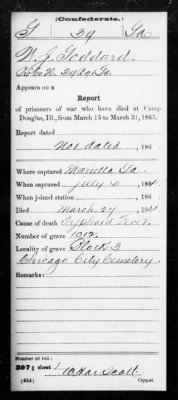 (Confederate.)
G 29 Ga
W. J. Goddard
29 Ga.
Appears on a
Report
of prisoners of war who have died at Camp
Douglas, Ill., from March 15 to March 31, 1865.
Report dated
Not dated, 186 .
Where captured Marietta Ga.
When captured July 2, 1864.
When joined station , 186 .
Died March 27, 186
Cause of death Typhoid Fev.
Number of grave 1012.
Locality of grave Block 3
Chicago City Cemetery.
Remarks:
Number of roll:
307; sheet 1
Scott
(654) Copyist.